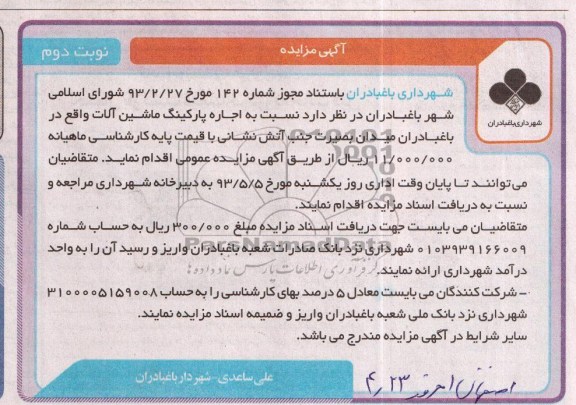 آگهی مزایده
نوبت دوم
شهرداری باغبادران
شهرداری باغبادران باستناد مجوز شماره ۱۴۲ مورخ ۹۳/۲/۲۷ شورای اسلامی
شهر باغبادران در نظر دارد نسبت به اجاره پارکینگ ماشین آلات واقع در
باغبادران میدان بصیرت جنب آتش نشانی با قیمت پایه کارشناسی ماهیانه
۱۱/۰۰۰/۰۰۰ ریال از طریق آگهی مزایده عمومی اقدام نماید. متقاضیان
می توانند تا پایان وقت اداری روز یکشنبه مورخ ۹۳/۵/۵ به دبیرخانه شهرداری مراجعه و
نسبت به دریافت اسناد مزایده اقدام نمایند.
متقاضیان می بایست جهت دریافت اسناد مزایده مبلغ ۳۰۰/۰۰۰ ریال به حساب شماره
۰۱۰۳۹۳۹۱۶۶۰۰۹ شهرداری نزد بانک صادرات شعبه باغبادران واریز و رسید آن را به واحد
درآمد شهرداری ارائه نمایند.
- شرکت کنندگان می بایست معادل ۵ درصد بهای کارشناسی را به حساب ۳۱۰۰۰۰۵۱۵۹۰۰۸
شهرداری نزد بانک ملی شعبه باغبادران واریز و ضمیمه اسناد مزایده نمایند.
سایر شرایط در آگهی مزایده مندرج می باشد.
علی ساعدی - شهردار باغبادران
اصفهان امروز ۴/۲۳
ParsNamadData